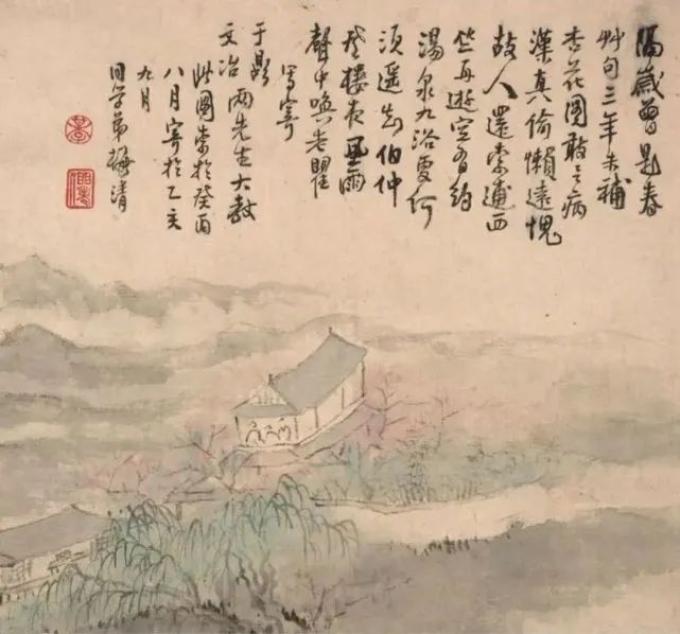 隔歲曾題春
艸句三年未補
杏花圖敢云病
渴真偷懶遠愧
故人還索逋西
竺再遊空有約
湯泉九浴更何
須遙知伯仲
登樓夜風雨
聲中喚老瞿
寫寄
于鼎
文冶兩先生大教
此圖索於癸酉
八月寄於乙亥
九月
同學弟梅清